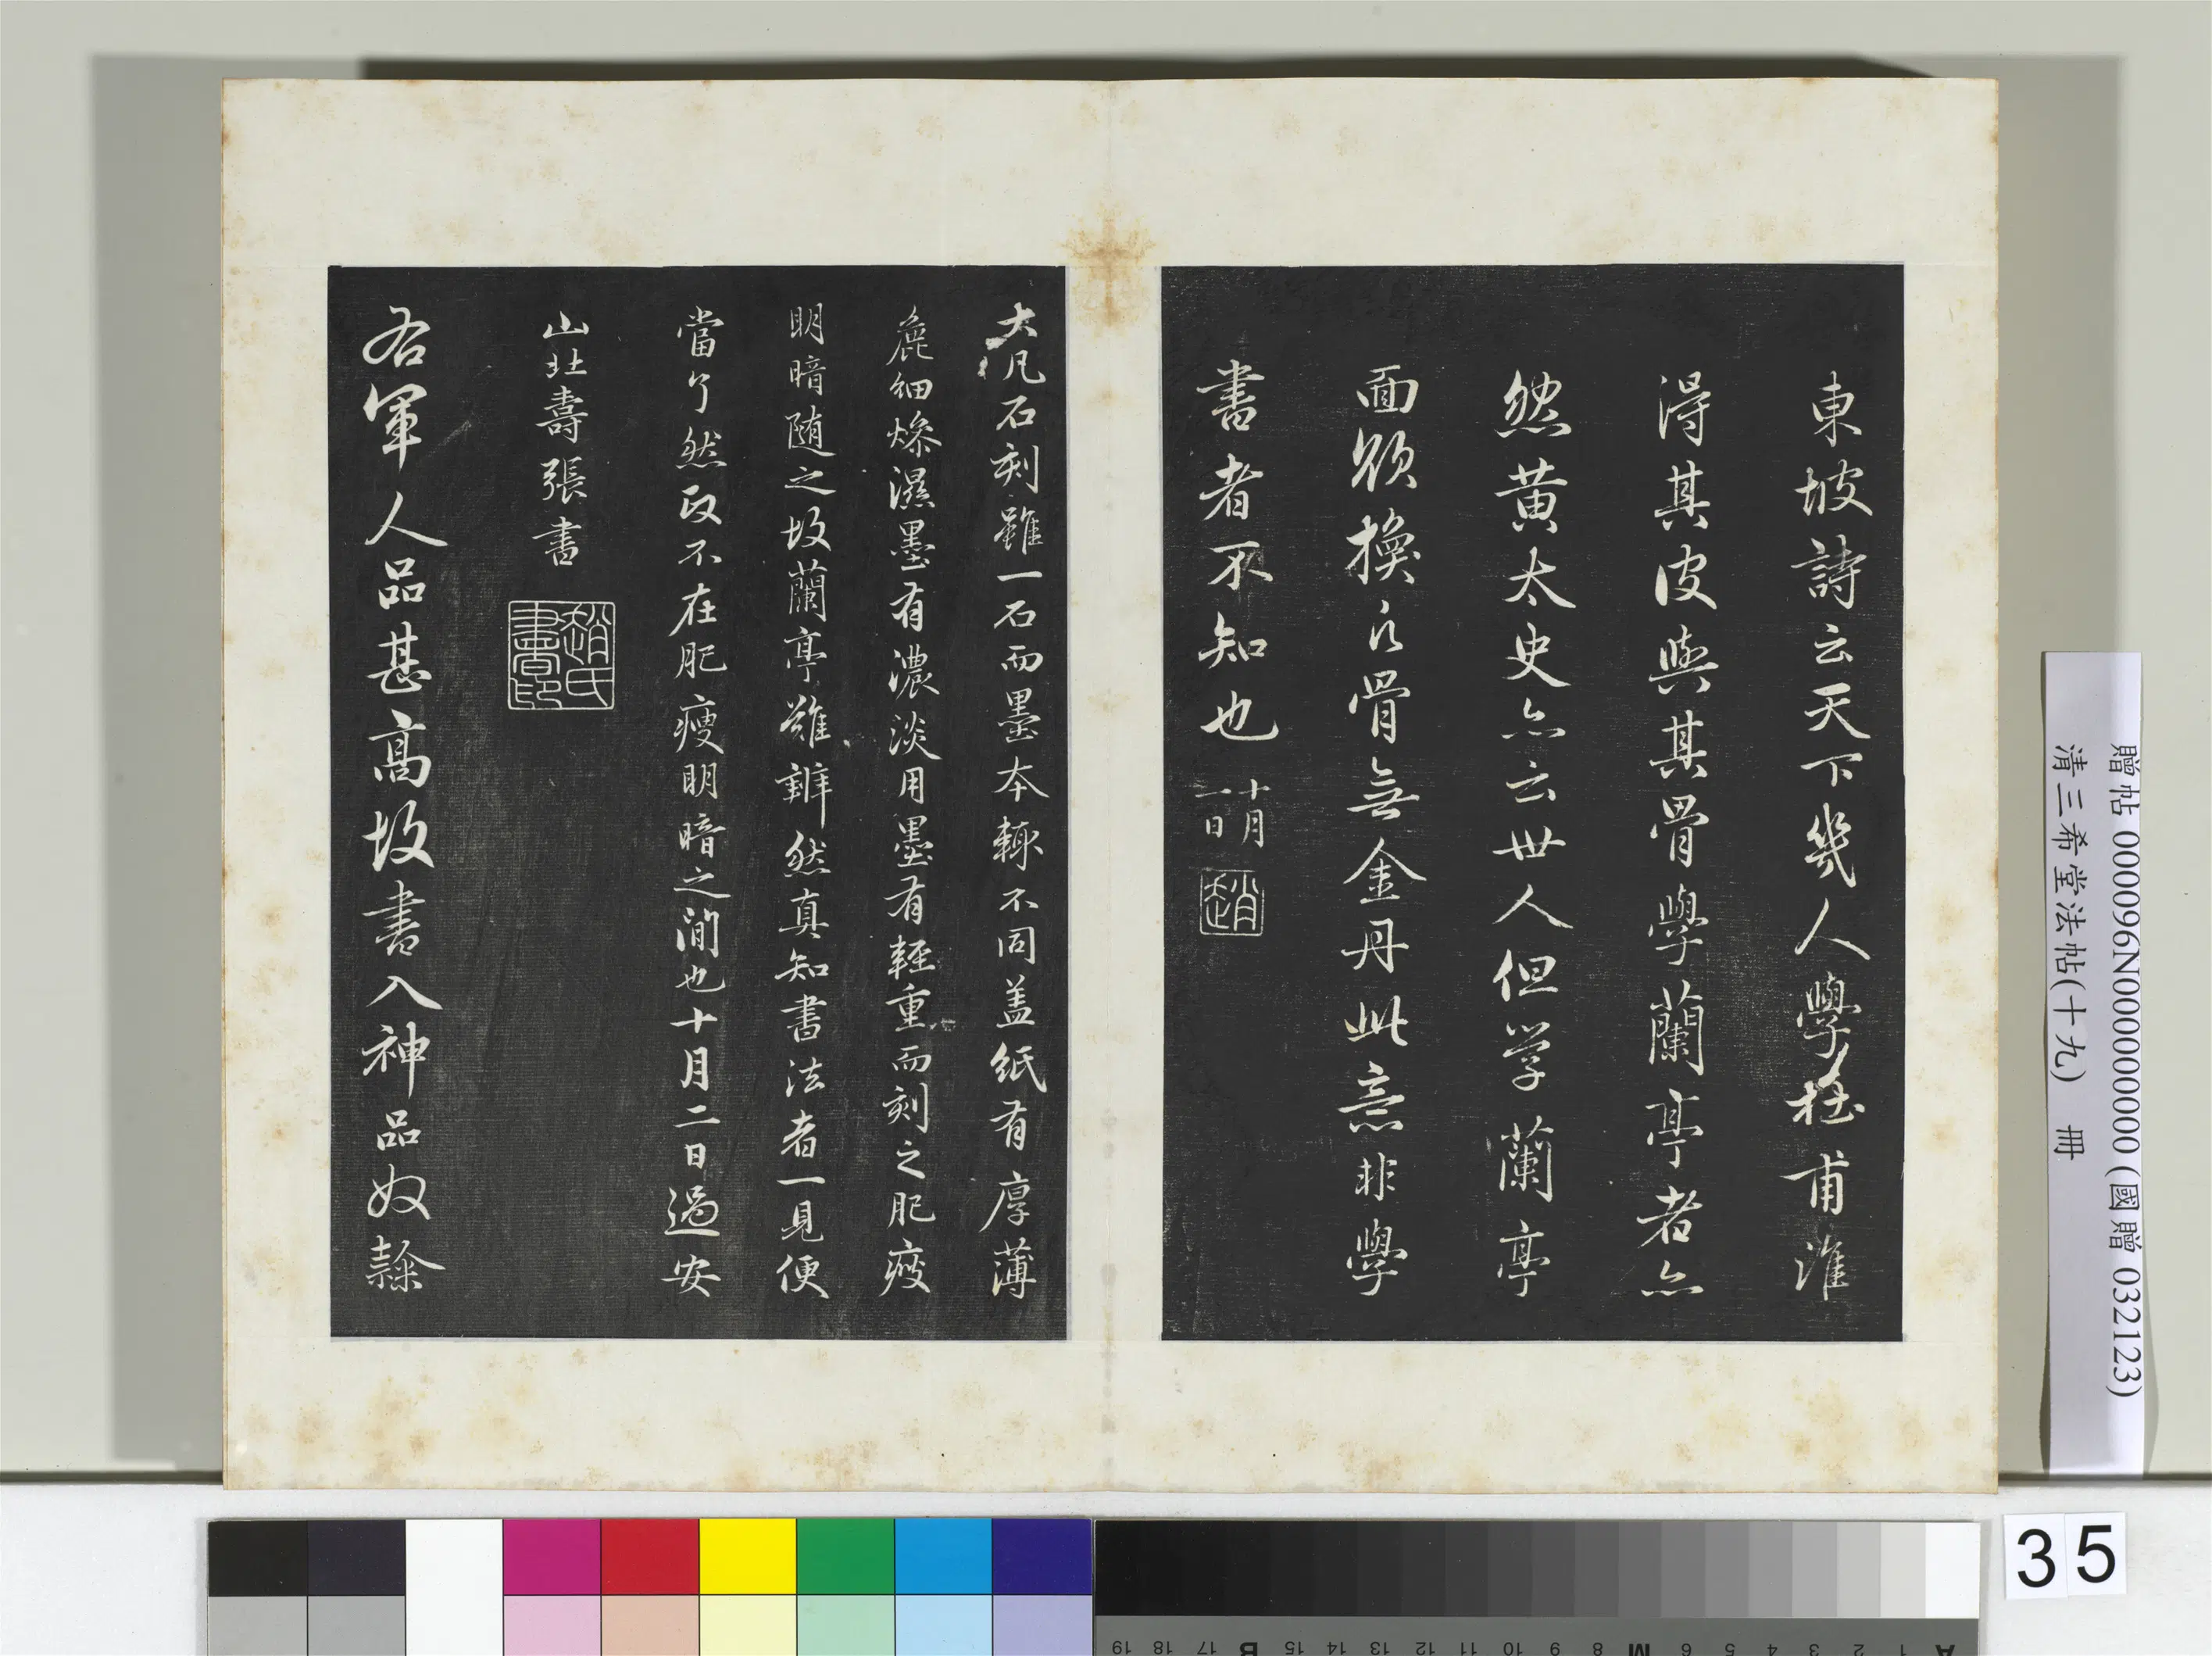 東坡詩云天下幾人學杜甫誰
得其皮與其骨學蘭亭者亦
然黄太史亦云世人但学蘭亭
面欲換凡骨無金丹此意非學
書者不知也 十月一日
趙
大凡石刻雖一石而墨本輒不同盖紙有厚薄
麁細燥濕墨有濃淡用墨有輕重而刻之肥瘦
明暗随之故蘭亭難辨然真知書法者一見便
當了然政不在肥瘦明暗之間也十月二日過安
山北壽張書
趙氏書印
右軍人品甚高故書入神品奴隸
贈帖 000096N000000000 (國贈 032123)
清三希堂法帖(十九) 冊
35
A 1 2 3 4 5 6 M 8 9 10 11 12 13 14 15 B 17 18 19